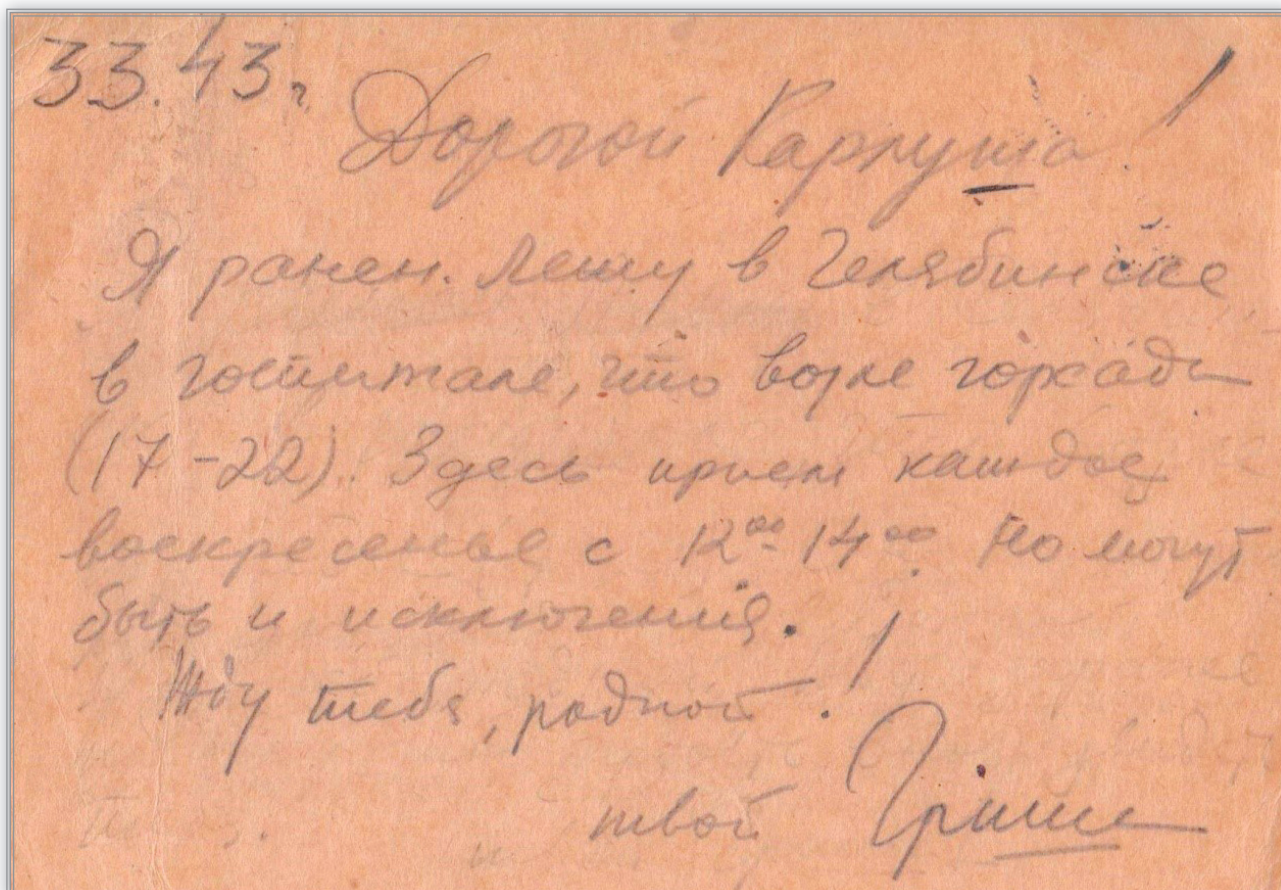 33.43г.
Дорогой Карпуша!
Я ранен. Лежу в Челябинске
в госпитале, что возле горсада
(17-22). Здесь прием каждое
воскресенье с 12⁰⁰-14⁰⁰. Но могут
быть и исключения.
Жду тебя, родной!
твой Гриша